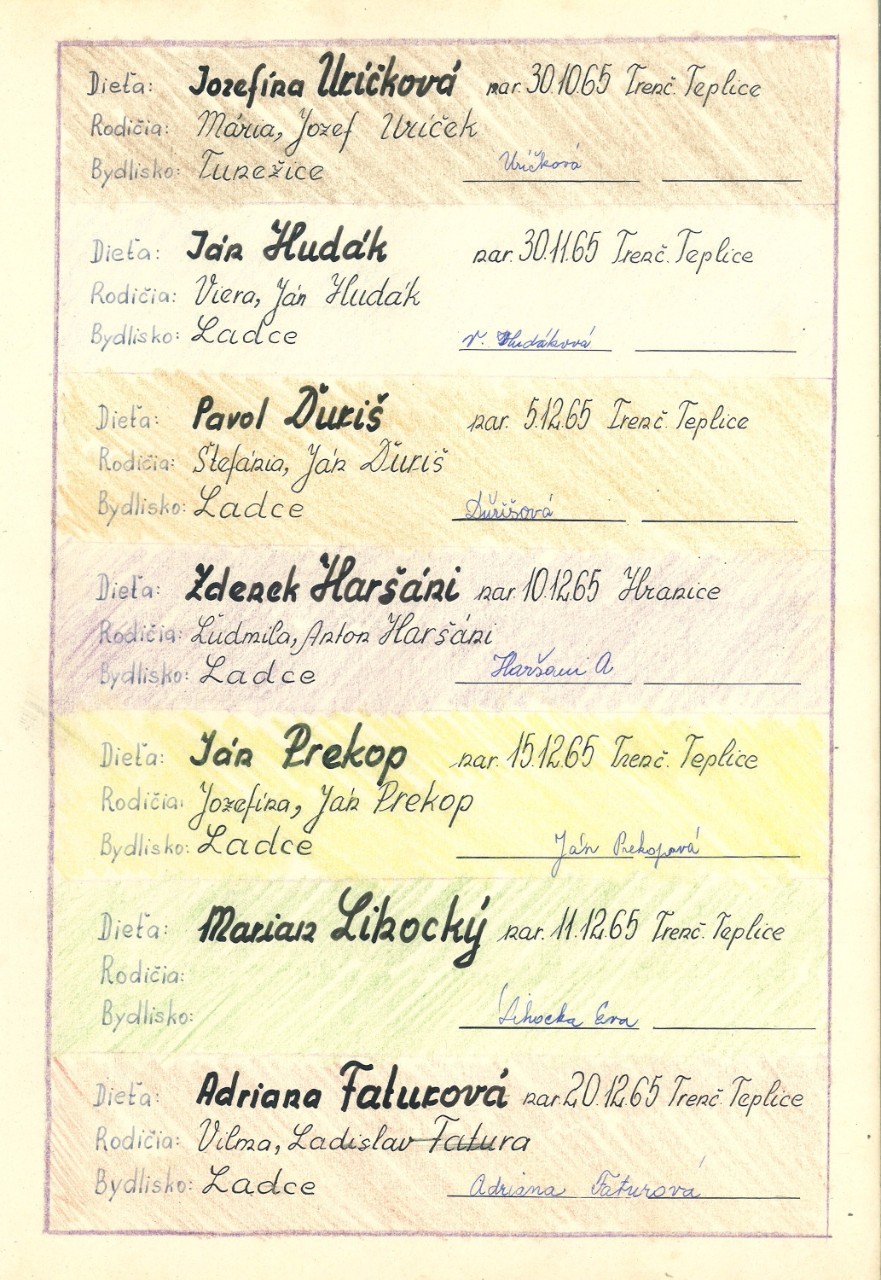 Dieťa: Jozefína Uríčková nar. 30.10.65 Trenč. Teplice
Rodičia: Mária, Jozef Uríček
Bydlisko: Tunežice Uričková
Dieťa: Ján Hudák nar. 30.11.65 Trenč. Teplice
Rodičia: Viera, Ján Hudák
Bydlisko: Ladce V. Hudáková
Dieťa: Pavol Ďuriš nar. 5.12.65 Trenč. Teplice
Rodičia: Štefánia, Ján Ďuriš
Bydlisko: Ladce Ďurišová
Dieťa: Zdenek Haršáni nar. 10.12.65 Hranice
Rodičia: Ľudmila, Anton Haršáni
Bydlisko: Ladce Haršani A
Dieťa: Ján Prekop nar. 15.12.65 Trenč. Teplice
Rodičia: Jozefína, Ján Prekop
Bydlisko: Ladce Ján Prekopová
Dieťa: Marian Lihocký nar. 11.12.65 Trenč. Teplice
Rodičia:
Bydlisko: Lihocka Eva
Dieťa: Adriana Faturová nar. 20.12.65 Trenč. Teplice
Rodičia: Vilma, Ladislav Fatura
Bydlisko: Ladce Adriana Faturová